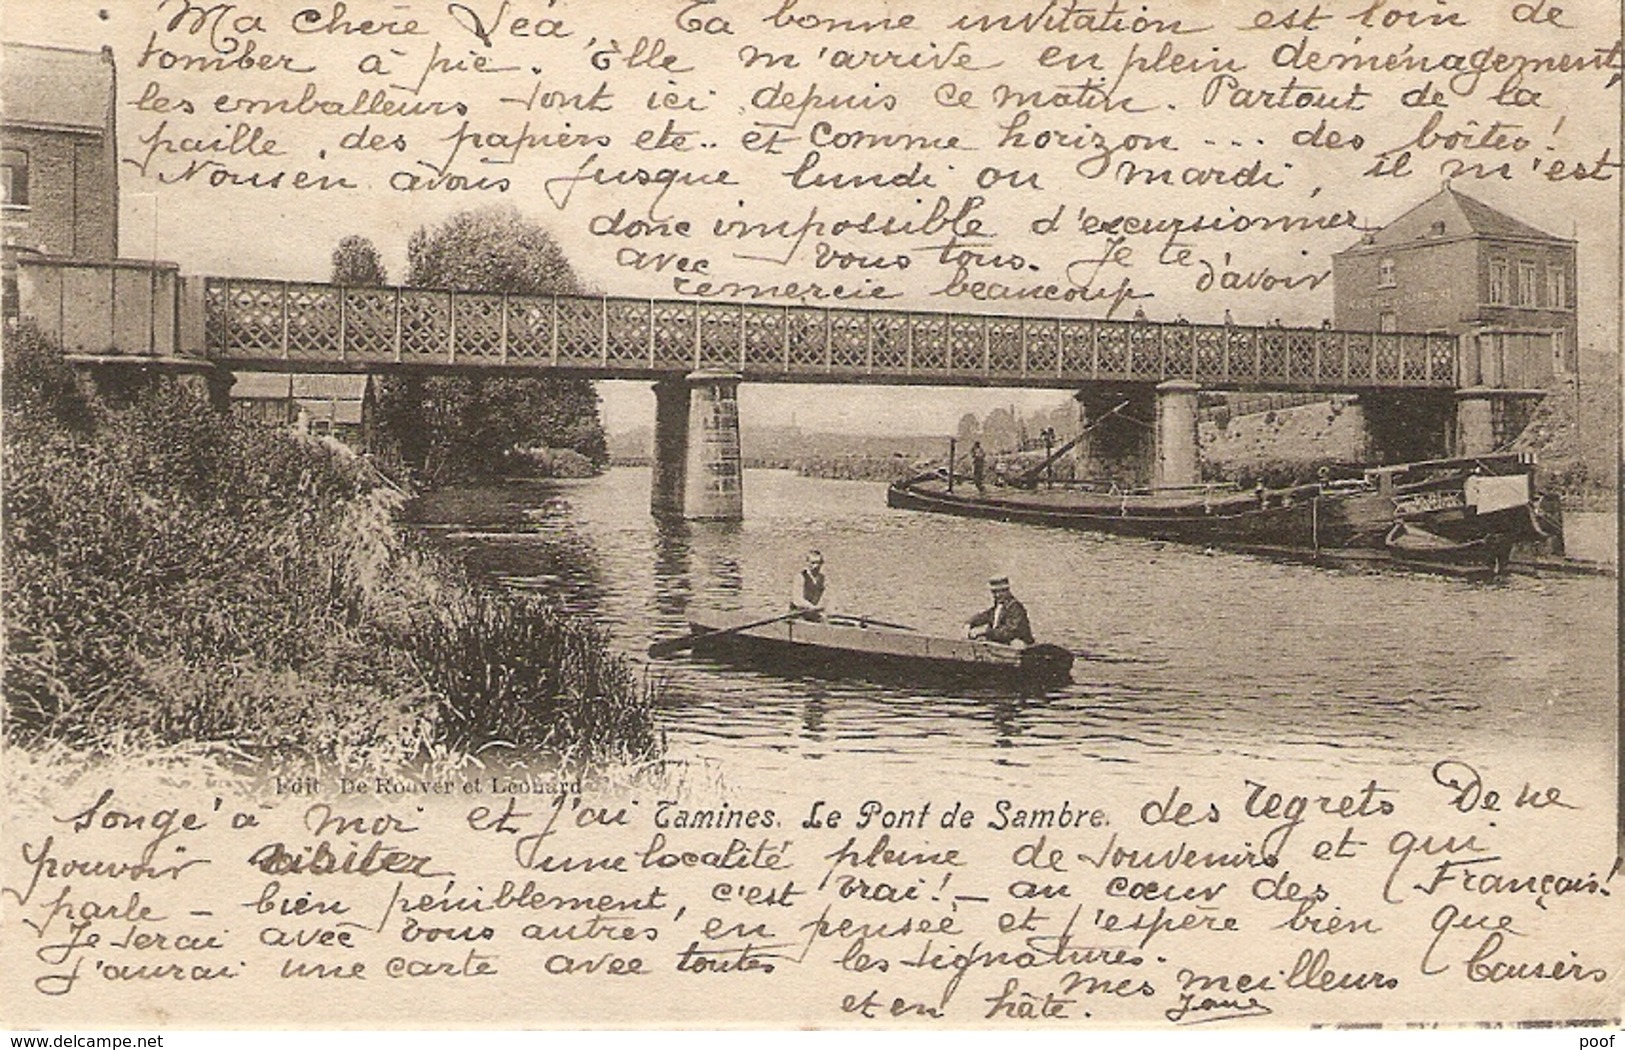 Ma chère Léa, Ta bonne invitation est loin de
tomber à pic. Elle m'arrive en plein déménagement,
les emballeurs sont ici depuis ce matin. Partout de la
paille, des papiers etc.. et comme horizon ... des boîtes!
Nous en avons jusque lundi ou mardi, il m'est
donc impossible d'excursionner
avec vous tous. Je te
remercie beaucoup d'avoir
Edit De Rouver et Léonard
songé à moi et j'ai Tamines. Le Pont de Sambre. des regrets De ne
pouvoir visiter une localité pleine de souvenirs et qui
parle – bien péniblement, c'est vrai! – au cœur des Français!
Je serai avec vous autres en pensée et j'espère bien que
j'aurai une carte avec toutes les signatures.
Mes meilleurs baisers
et en hâte.
www.delcampe.net
poof